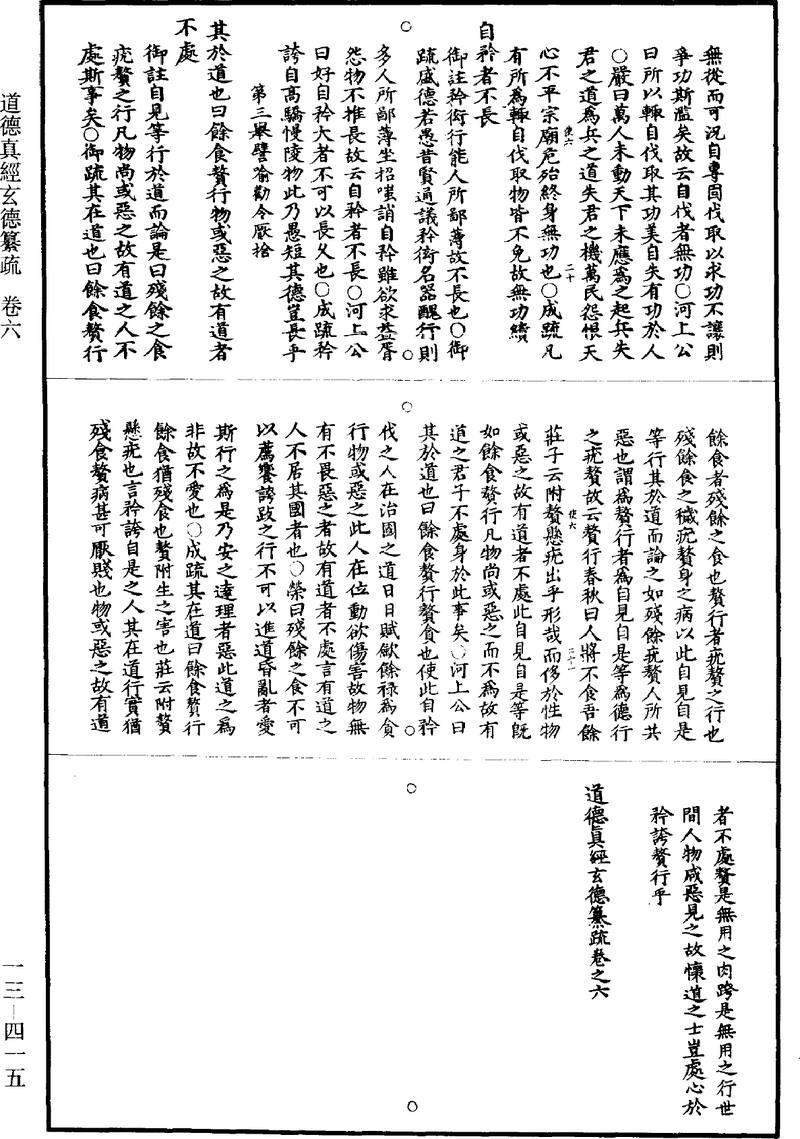 無從而可況自專固伐取以求功不讓則
爭功斯濫矣故云自伐者無功○河上公
曰所以輒自伐取其功美自失有功於人
○嚴曰萬人未動天下未應為之起兵失
君之道為兵之道失君之機萬民怨恨天
心不平宗廟危殆終身無功也○成疏凡
有所為輒自伐取物皆不免故無功績
自矜者不長
御註矜衒行能人所鄙薄故不長也○御
疏盛德若愚昔賢通議矜衒名器醜行則
多人所鄙薄坐招嗤誚自矜雖欲求益胥
怨物不推長故云自矜者不長○河上公
曰好自矜大者不可以長久也○成疏矜
誇自高驕慢陵物此乃愚短其德豈長乎
第三舉譬喻勸令厭捨
其於道也曰餘食贅行物或惡之故有道者
不處
御註自見等行於道而論是曰殘餘之食
疣贅之行凡物尚或惡之故有道之人不
處斯事矣○御疏其在道也曰餘食贅行
餘食者殘餘之食也贅行者疣贅之行也
殘餘食之穢疣贅身之病以此自見自是
等行其於道而論之如殘餘疣贅人所共
惡也謂為贅行者為自見自是等為德行
之疣贅故云贅行春秋曰人將不食吾餘
莊子云附贅懸疣出乎形哉而侈於性物
或惡之故有道者不處此自見自是等既
如餘食贅行凡物尚或惡之而不為故有
道之君子不處身於此事矣○河上公曰
其於道也曰餘食贅行贅貪也使此自矜
伐之人在治國之道日日賦歛餘祿為貪
行物或惡之此人在位動欲傷害故物無
有不畏惡之者故有道者不處言有道之
人不居其國者也○榮曰殘餘之食不可
以薦饗誇跂之行不可以進道昏亂者愛
斯行之為是乃安之達理者惡此道之為
非故不愛也○成疏其在道曰餘食贅行
餘食猶殘食也贅附生之害也莊云附贅
懸疣也言矜誇自是之人其在道行實猶
殘食贅病甚可厭賤也物或惡之故有道
者不處贅是無用之肉跨是無用之行世
間人物咸惡見之故懷道之士豈處心於
矜誇贅行乎
道德真經玄德纂疏卷之六
道德真經玄德纂疏 卷六
一三—四一五